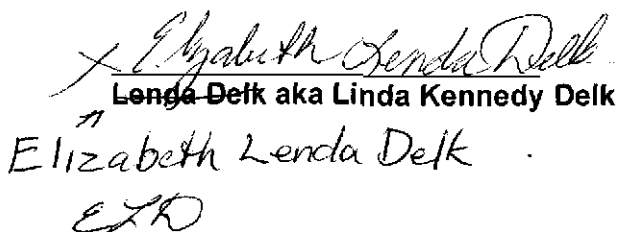 x Elizabeth Lenda Delk
Lenda Delk aka Linda Kennedy Delk
Elizabeth Lenda Delk
ELD